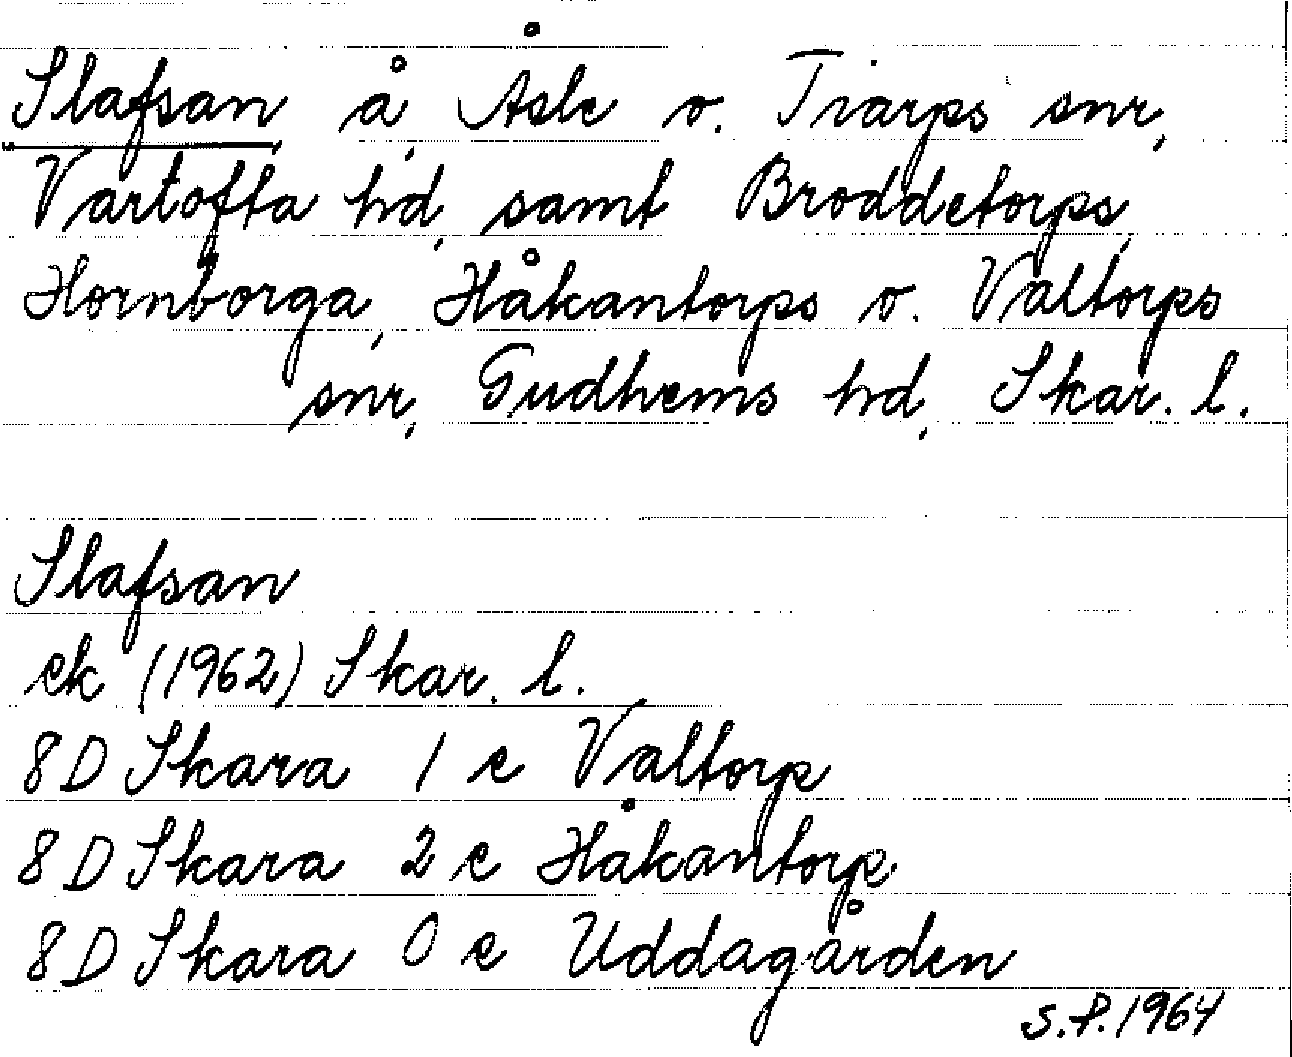 Slafsan, å, Åsle o. Tiarps snr,
Vartofta hd, samt Broddetorps,
Hornborga, Håkantorps o. Valtorps
snr, Gudhems hd, Skar. l.
Slafsan
ek (1962) Skar. l.
8D Skara 1 e Valtorp
8D Skara 2 e Håkantorp
8D Skara 0 e Uddagården
S.P. 1964